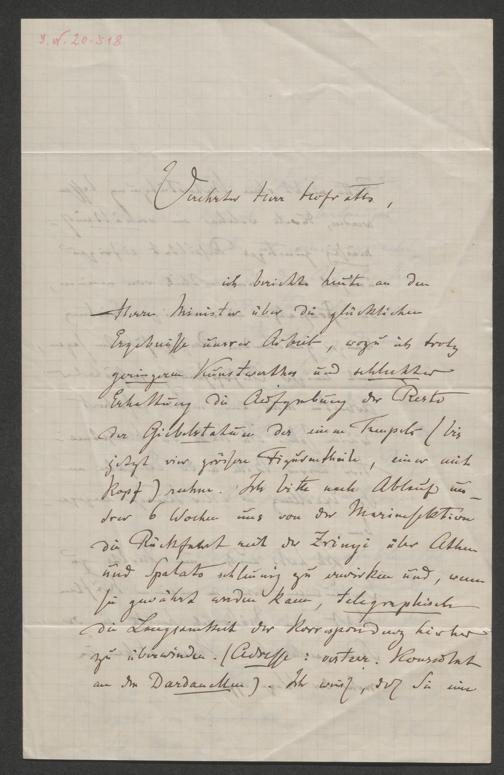 I. N. 20.518
Verehrter Herr Hofrath,
ich berichte heute an den
Herrn Minister über die glücklichen
Ergebnisse unsrer Arbeit, wozu ich trotz
geringeren Kunstwerthes und schlechter
Erhaltung die Aufgrabung der Reste
der Giebelstatuen des einen Tempels (bis
jetzt vier größere Figurentheile, einer mit
Kopf) rechne. Ich bitte nach Ablauf uns-
rer 6 Wochen uns von der Marinesektion
die Rückfahrt mit der Zrinyi über Athen
und Spalato schleunig zu erwirken und, wenn
sie gewährt werden kann, telegraphisch
die Langsamkeit der Korrespondenz hierher
zu überwinden. (Adresse: oesterr. Konsulat
an den Dardanellen). Ich weiß, daß Sie eine